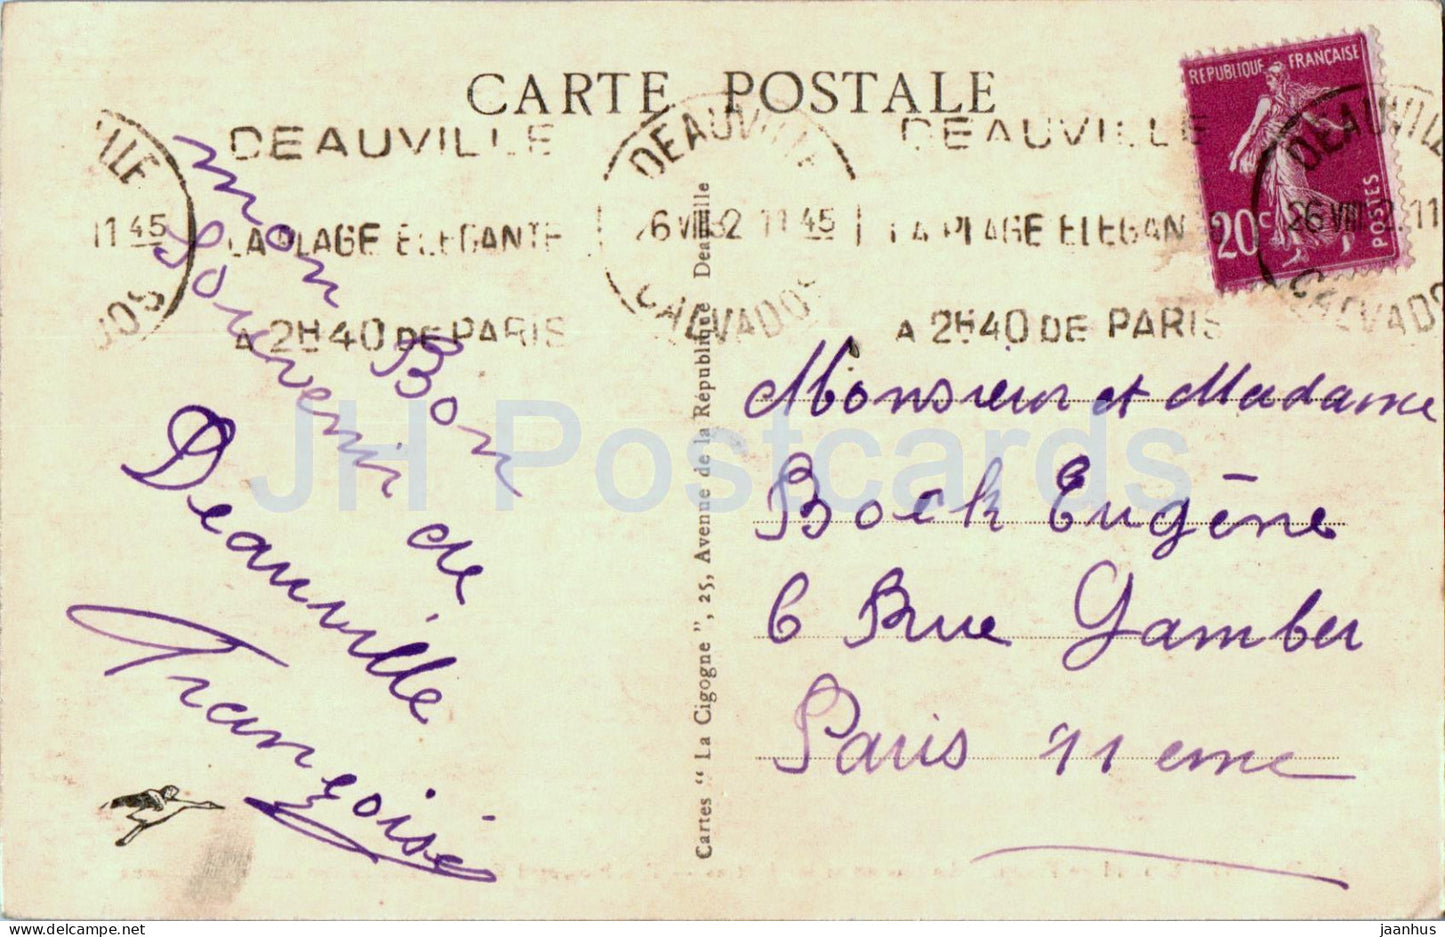 CARTE POSTALE
REPUBLIQUE FRANÇAISE
20c
POSTES
DEAUVILLE
LA PLAGE ELEGANTE
A 2H40 DE PARIS
DEAUVILLE
26 VIII 32 11 45
CALVADOS
DEAUVILLE
LA PLAGE ELEGAN
A 2H40 DE PARIS
DEAUVILLE
26 VIII 32 11
CALVADOS
VILLE
11 45
DOS
mon Bon
Souvenir de
Deauville
Françoise
Cartes “ La Cigogne ”, 25, Avenue de la République Deauville
Monsieur et Madame
Bock Eugène
6 Rue Gamber
Paris 11 eme
JH Postcards
jaanhus